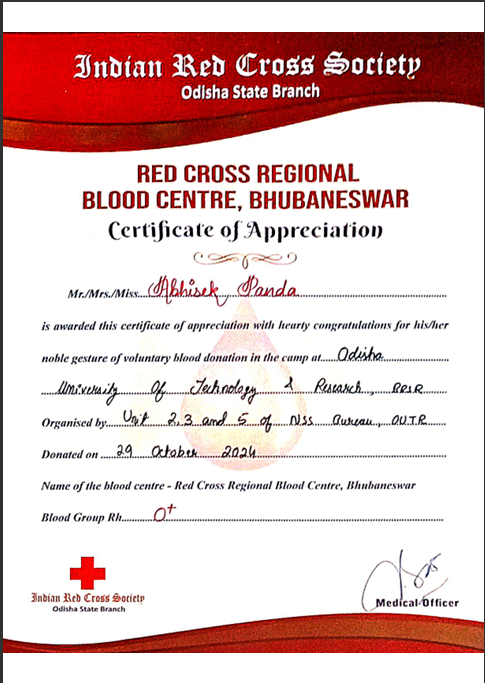 Indian Red Cross Society
Odisha State Branch
RED CROSS REGIONAL
BLOOD CENTRE, BHUBANESWAR
Certificate of Appreciation
Mr./Mrs./Miss. Abhisek Panda
is awarded this certificate of appreciation with hearty congratulations for his/her
noble gesture of voluntary blood donation in the camp at Odisha
University Of Technology & Research, BBSR
Organised by Unit 2,3 and 5 of NSS Bureau, OUTR
Donated on 29 October 2024
Name of the blood centre - Red Cross Regional Blood Centre, Bhubaneswar
Blood Group Rh O+
Indian Red Cross Society
Odisha State Branch
Medical Officer